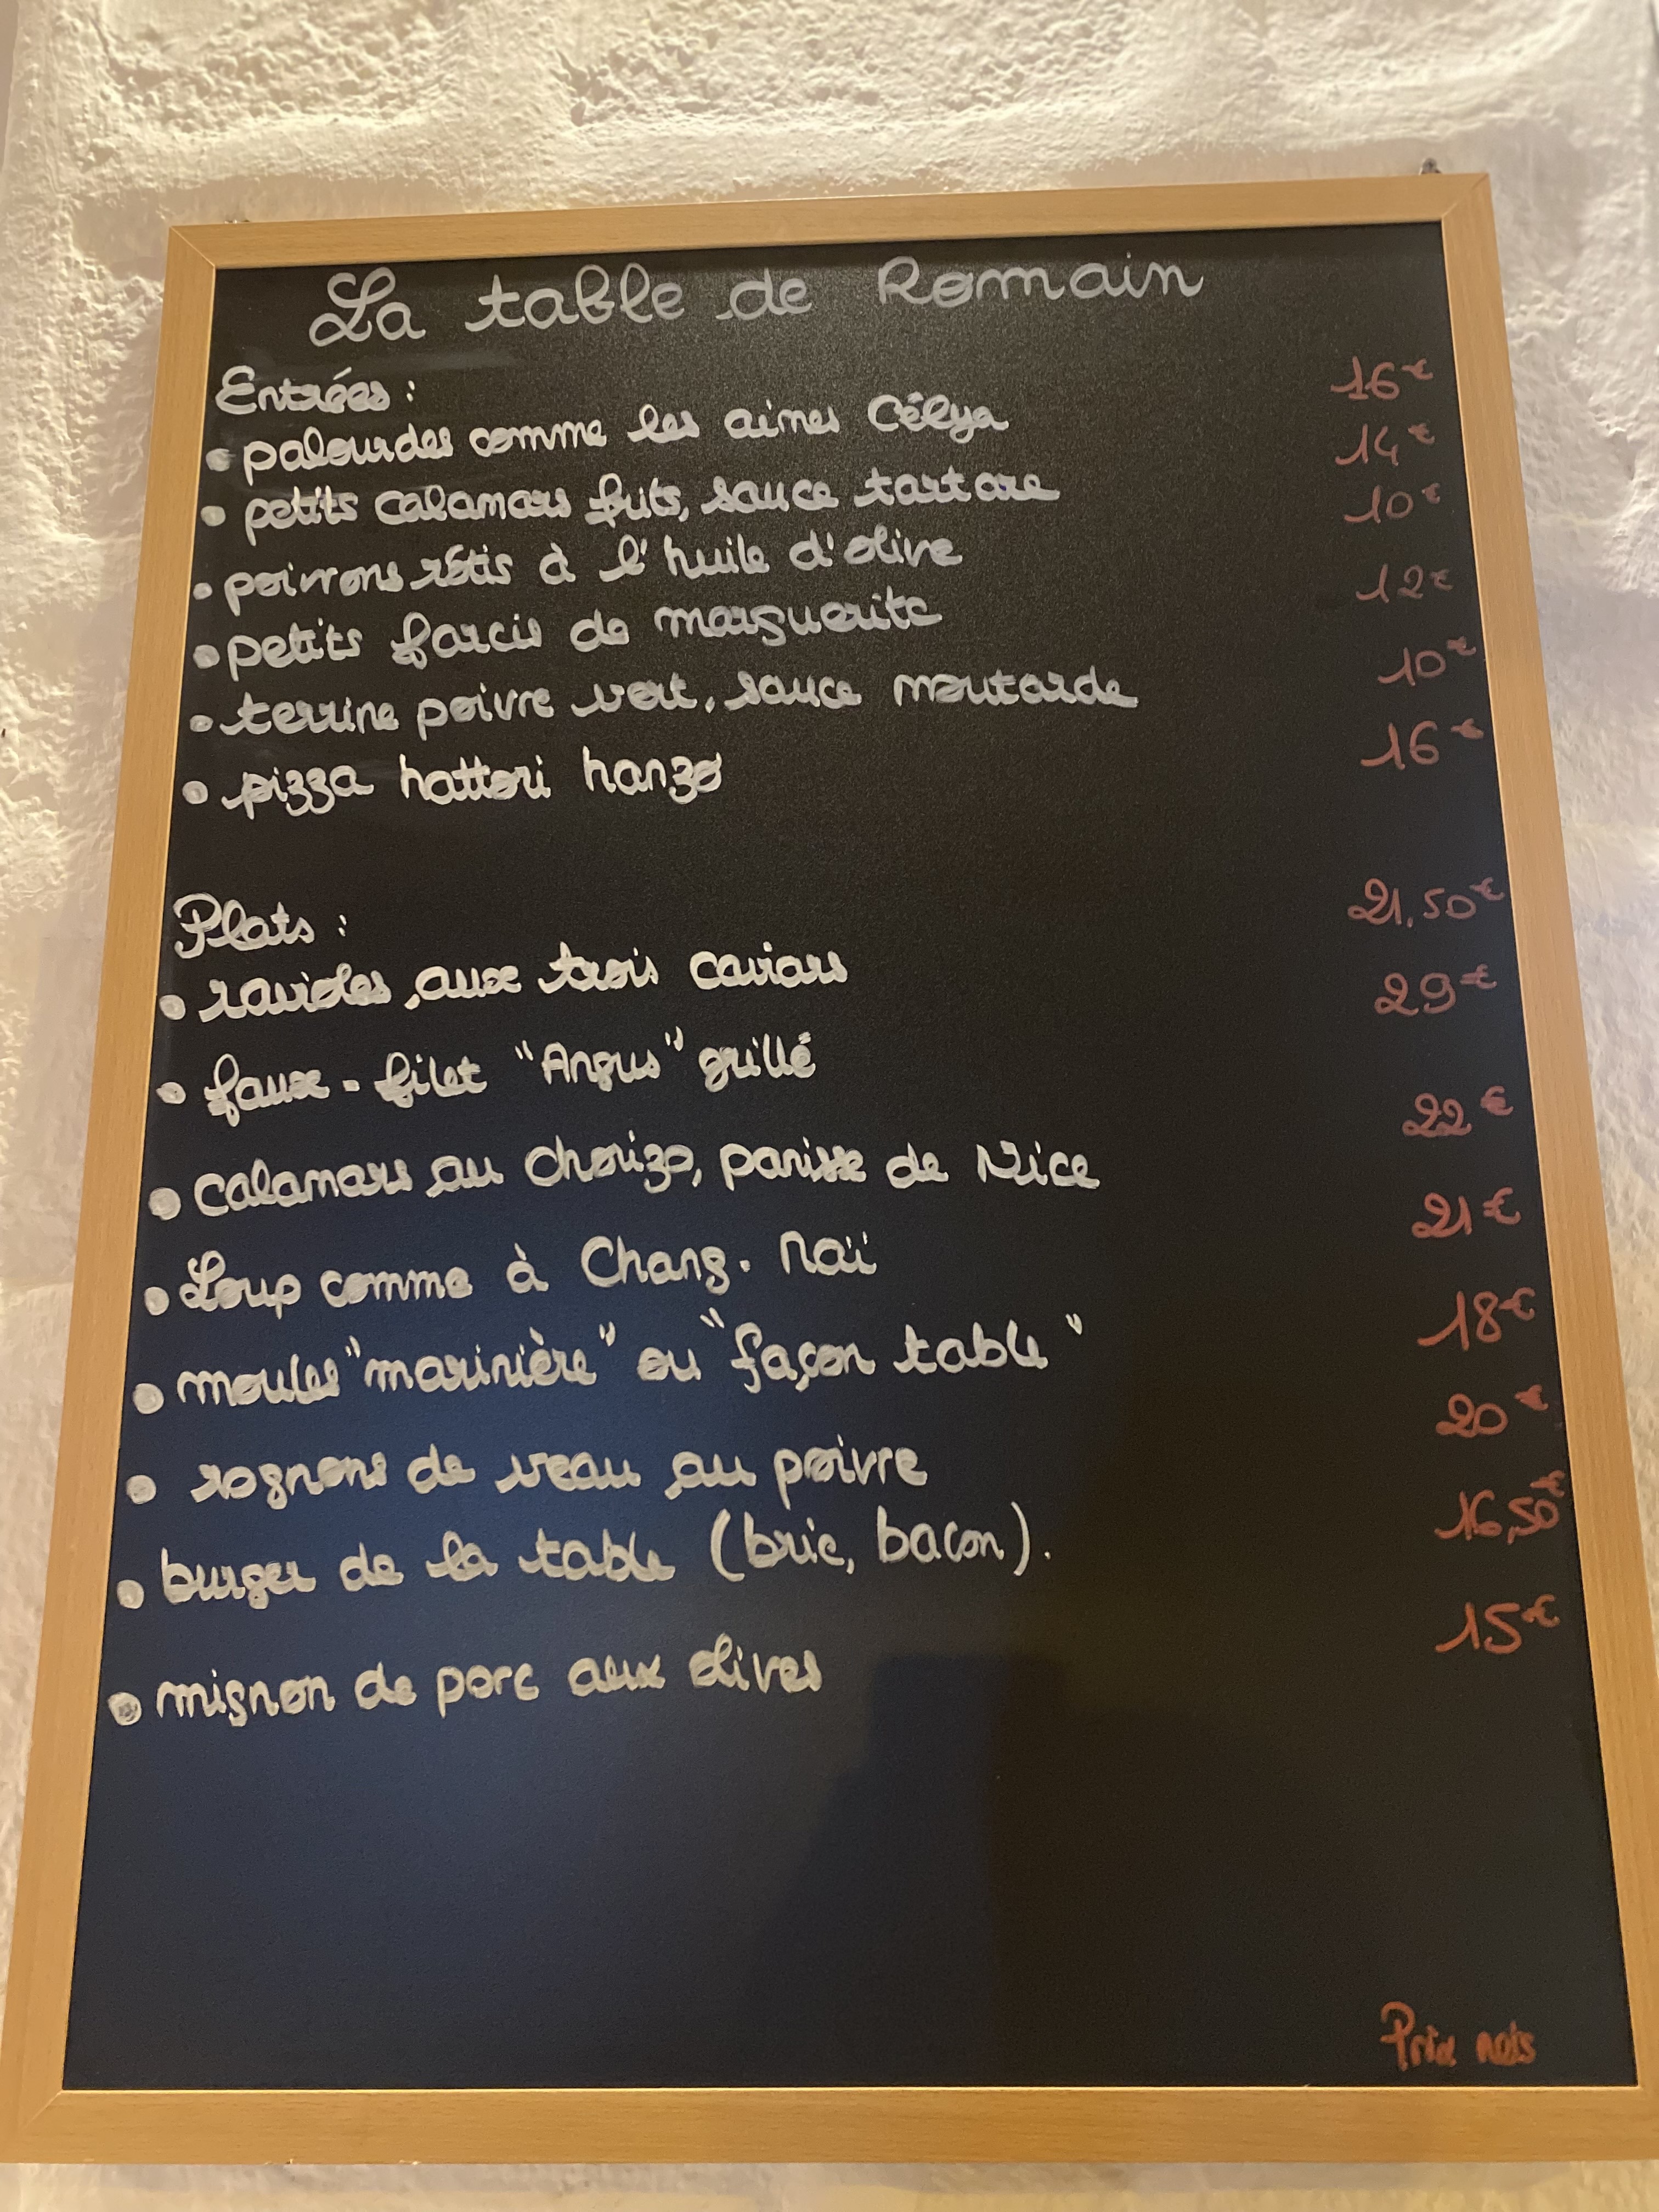 La table de Romain
Entrées :
• palourdes comme les aimes Célya 16€
• petits calamars frits, sauce tartare 14€
• poivrons rôtis à l'huile d'olive 10€
• petits farcis de marguerite 12€
• terrine poivre vert, sauce moutarde 10€
• pizza hattori hanzo 16€
Plats :
• ravioles aux trois caviars 21.50€
• faux-filet "Angus" grillé 29€
• calamars au chorizo, panisse de Nice 22€
• Loup comme à Chang-Naï 21€
• moules "marinière" ou "façon table" 18€
• rognons de veau au poivre 20€
• burger de la table (brie, bacon). 16,50€
• mignon de porc aux olives 15€
Prix nets